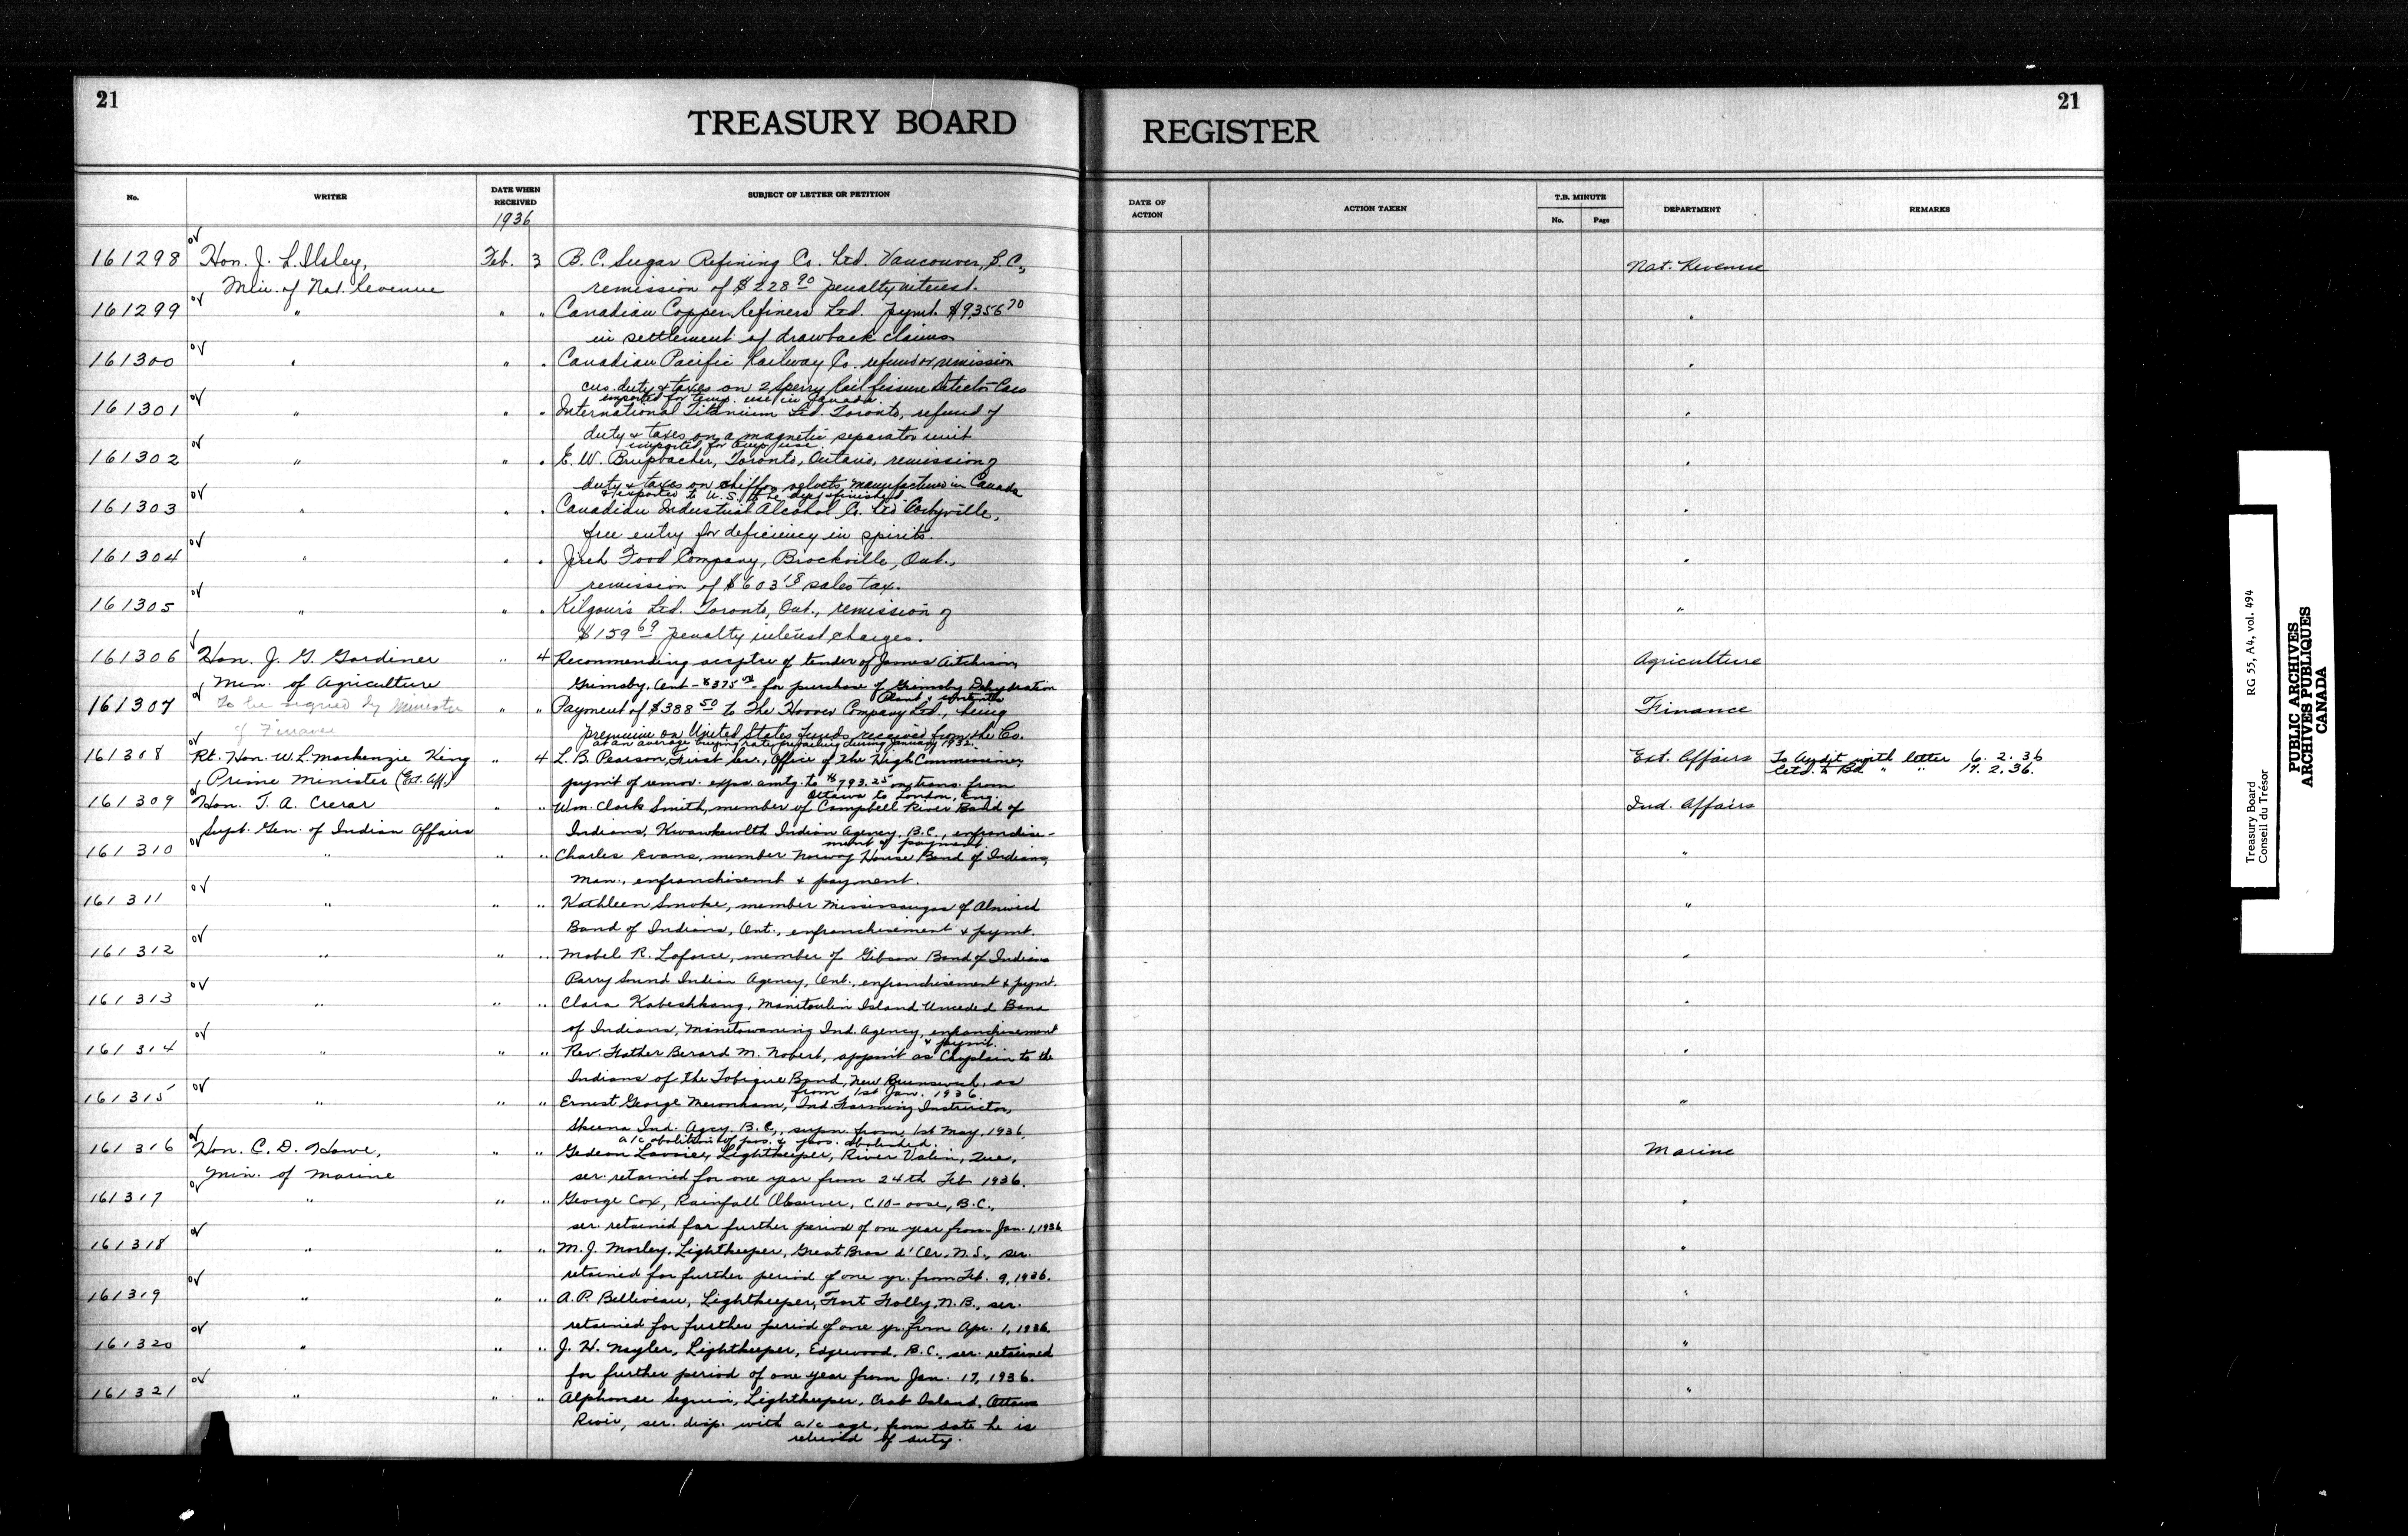 21
21
TREASURY BOARD REGISTER
No.
WRITER
DATE WHEN RECEIVED
1936
SUBJECT OF LETTER OR PETITION
DATE OF ACTION
ACTION TAKEN
T.B. MINUTE
No. Page
DEPARTMENT
REMARKS
161298 Hon. J. L. Ilsley, Feb. 3 B.C. Sugar Refining Co. Ltd. Vancouver, B.C., Nat. Revenue
Min. of Nat. Revenue remission of $228.90 penalty interest.
161299 " " " Canadian Copper Refiners Ltd. pymt. $9,356.70 "
in settlement of drawback claims
161300 " " " Canadian Pacific Railway Co. refund or remission "
cus. duty & taxes on 2 Sperry Rail fissure Detector Cars
imported for temp. use in Canada.
161301 " " " International Titanium Ltd. Toronto, refund of "
duty & taxes on a magnetic separator unit
imported for temp. use.
161302 " " " E. W. Brupbacher, Toronto, Ontario, remission of "
duty & taxes on chiffon velvets, manufactured in Canada
& exported to U.S. to be dyed & finished.
161303 " " " Canadian Industrial Alcohol Co. Ltd. Corbyville, "
free entry for deficiency in spirits.
161304 " " " Jireh Food Company, Brockville, Ont., "
remission of $603.18 sales tax.
161305 " " " Kilgour's Ltd. Toronto, Ont., remission of "
$159.69 penalty interest charges.
161306 Hon. J. G. Gardiner " 4 Recommending accptce of tender of James Aitchison, Agriculture
Min. of Agriculture Grimsby, Ont - $375 - for purchase of Grimsby Dehydration
Plant &
161307 To be signed by Minister " " Payment of $388.50 to The Hoover Company Ltd., being Finance
of Finance premium on United States Funds received from the Co.
at an average buying rate prevailing during January 1932.
161308 Rt. Hon. W. L. Mackenzie King " 4 L. B. Pearson, First Sec., Office of The High Commissioner, Ext. Affairs To Audit with letter 6. 2. 36
Prime Minister (Ext. Aff.) paymt of remov. exps. amtg. to $793.25 on trans. from Retd. to Bd. " " 17. 2. 36.
Ottawa to London, Eng.
161309 Hon. T. A. Crerar " " Wm. Clark Smith, member of Campbell River Band of Ind. Affairs
Supt. Gen. of Indian Affairs Indians, Kwawkewlth Indian Agency, B.C., enfranchise-
ment & payment.
161310 " " " Charles Evans, member Norway House Band of Indians, "
Man., enfranchisemt & payment.
161311 " " " Kathleen Smoke, member Mississaugas of Alnwick "
Band of Indians, Ont., enfranchisement & pymt.
161312 " " " Mabel R. Laforce, member of Gibson Band of Indians "
Parry Sound Indian Agency, Ont., enfranchisement & paymt.
161313 " " " Clara Kabeshkang, Manitoulin Island Unceded Band "
of Indians, Manitowaning Ind. Agency, enfranchisement
& paymt.
161314 " " " Rev. Father Berard M. Nobert, appmt as Chaplain to the "
Indians of the Tobique Band, New Brunswick, as
from 1st Jan. 1936.
161315 " " " Ernest George Mewnham, Ind. Farming Instructor, "
Skeena Ind. Agcy. B.C., supn. from 1st May, 1936,
a/c abolition of pos. & pos. abolished.
161316 Hon. C. D. Howe, " " Gedeon Lavoie, Lightkeeper, River Valin, Que., Marine
Min. of Marine ser. retained for one year from 24th Feb 1936.
161317 " " " George Cox, Rainfall Observer, Clo-oose, B.C., "
ser. retained for further period of one year from Jan. 1, 1936.
161318 " " " M. J. Morley, Lightkeeper, Great Bras d'Or, N.S., ser. "
retained for further period of one yr. from Feb. 9, 1936.
161319 " " " A. P. Belliveau, Lightkeeper, Fort Folly, N.B., ser. "
retained for further period of one yr. from Apr. 1, 1936.
161320 " " " J. H. Nayler, Lightkeeper, Edgewood, B.C., ser. retained "
for further period of one year from Jan. 17, 1936.
161321 " " " Alphonse Seguin, Lightkeeper, Crab Island, Ottawa "
River, ser. disp. with a/c age, from date he is
relieved of duty.
Treasury Board RG 55, A4, vol. 494
Conseil du Trésor
PUBLIC ARCHIVES
ARCHIVES PUBLIQUES
CANADA